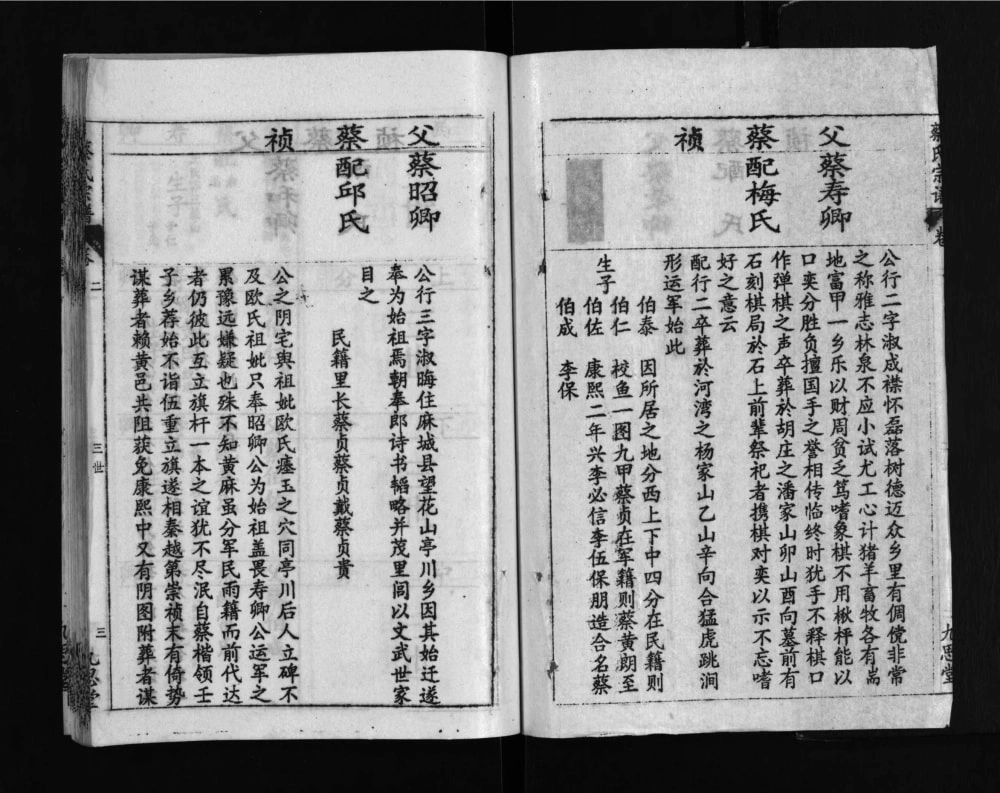 蔡氏宗谱
卷
九思堂
父蔡寿卿
蔡配梅氏
祯
公行二字淑成襟怀磊落树德迈众乡里有倜傥非常
之称雅志林泉不应小试尤工心计猪羊畜牧各有苑
地富甲一乡乐以财周贫乏笃嗜象棋不用楸枰能以
口奕分胜负擅国手之誉相传临终时犹手不释棋口
作弹棋之声卒葬於胡庄之潘家山卯山酉向墓前有
石刻棋局於石上前辈祭祀者携棋对奕以示不忘嗜
好之意云
配行二卒葬於河湾之杨家山乙山辛向合猛虎跳涧
形运军始此
生子
伯泰 因所居之地分西上下中四分在民籍则
伯仁 校鱼一图九甲蔡贞在军籍则蔡黄朗至
伯佐 康熙二年兴李必信李伍保朋造合名蔡
伯成 李保
父蔡昭卿
蔡配邱氏
祯
公行三字淑晦住麻城县望花山亭川乡因其始迁遂
奉为始祖焉朝奉郎诗书韬略并茂里闾以文武世家
目之
民籍里长蔡贞蔡贞戴蔡贞贵
公之阴宅舆祖妣欧氏瘗玉之穴同亭川后人立碑不
及欧氏祖妣只奉昭卿公为始祖盖畏寿卿公运军之
累豫远嫌疑也殊不知黄麻虽分军民两籍而前代达
者仍彼此互立旗杆一本之谊犹不尽泯自蔡楷领壬
子乡荐始不诣伍重立旗遂相秦越第崇祯末有倚势
谋葬者赖黄邑共阻获免康熙中又有阴图附葬者谋
二
三世
三
九思堂